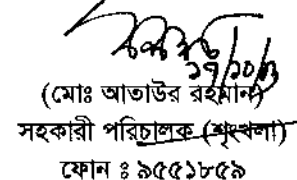 ১৭/১০/০১
(মোঃ আতাউর রহমান)
সহকারী পরিচালক (শৃংখলা)
ফোন ঃ ৯৫৫১৮৫৯